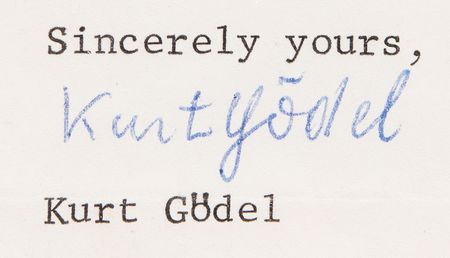 Sincerely yours,
Kurt Gödel
Kurt Gödel